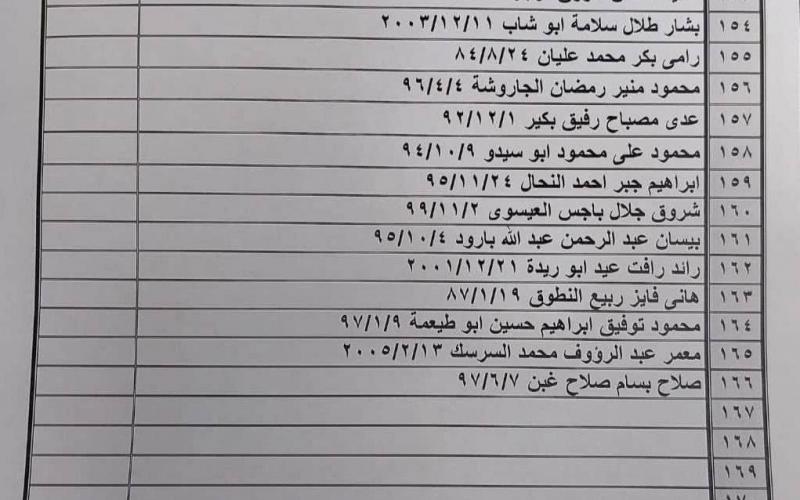 ١٥٤ بشار طلال سلامة ابو شاب ٢٠٠٣/١٢/١١
١٥٥ رامى بكر محمد عليان ٨٤/٨/٢٤
١٥٦ محمود منير رمضان الجاروشة ٩٦/٤/٤
١٥٧ عدى مصباح رفيق بكير ٩٢/١٢/١
١٥٨ محمود على محمود ابو سيدو ٩٤/١٠/٩
١٥٩ ابراهيم جبر احمد النحال ٩٥/١١/٢٤
١٦٠ شروق جلال باجس العيسوى ٩٩/١١/٢
١٦١ بيسان عبد الرحمن عبد الله بارود ٩٥/١٠/٤
١٦٢ رائد رافت عيد ابو ريدة ٢٠٠١/١٢/٢١
١٦٣ هانى فايز ربيع النطوق ٨٧/١/١٩
١٦٤ محمود توفيق ابراهيم حسين ابو طيعمة ٩٧/١/٩
١٦٥ معمر عبد الرؤوف محمد السرسك ٢٠٠٥/٢/١٣
١٦٦ صلاح بسام صلاح غبن ٩٧/٦/٧
١٦٧
١٦٨
١٦٩